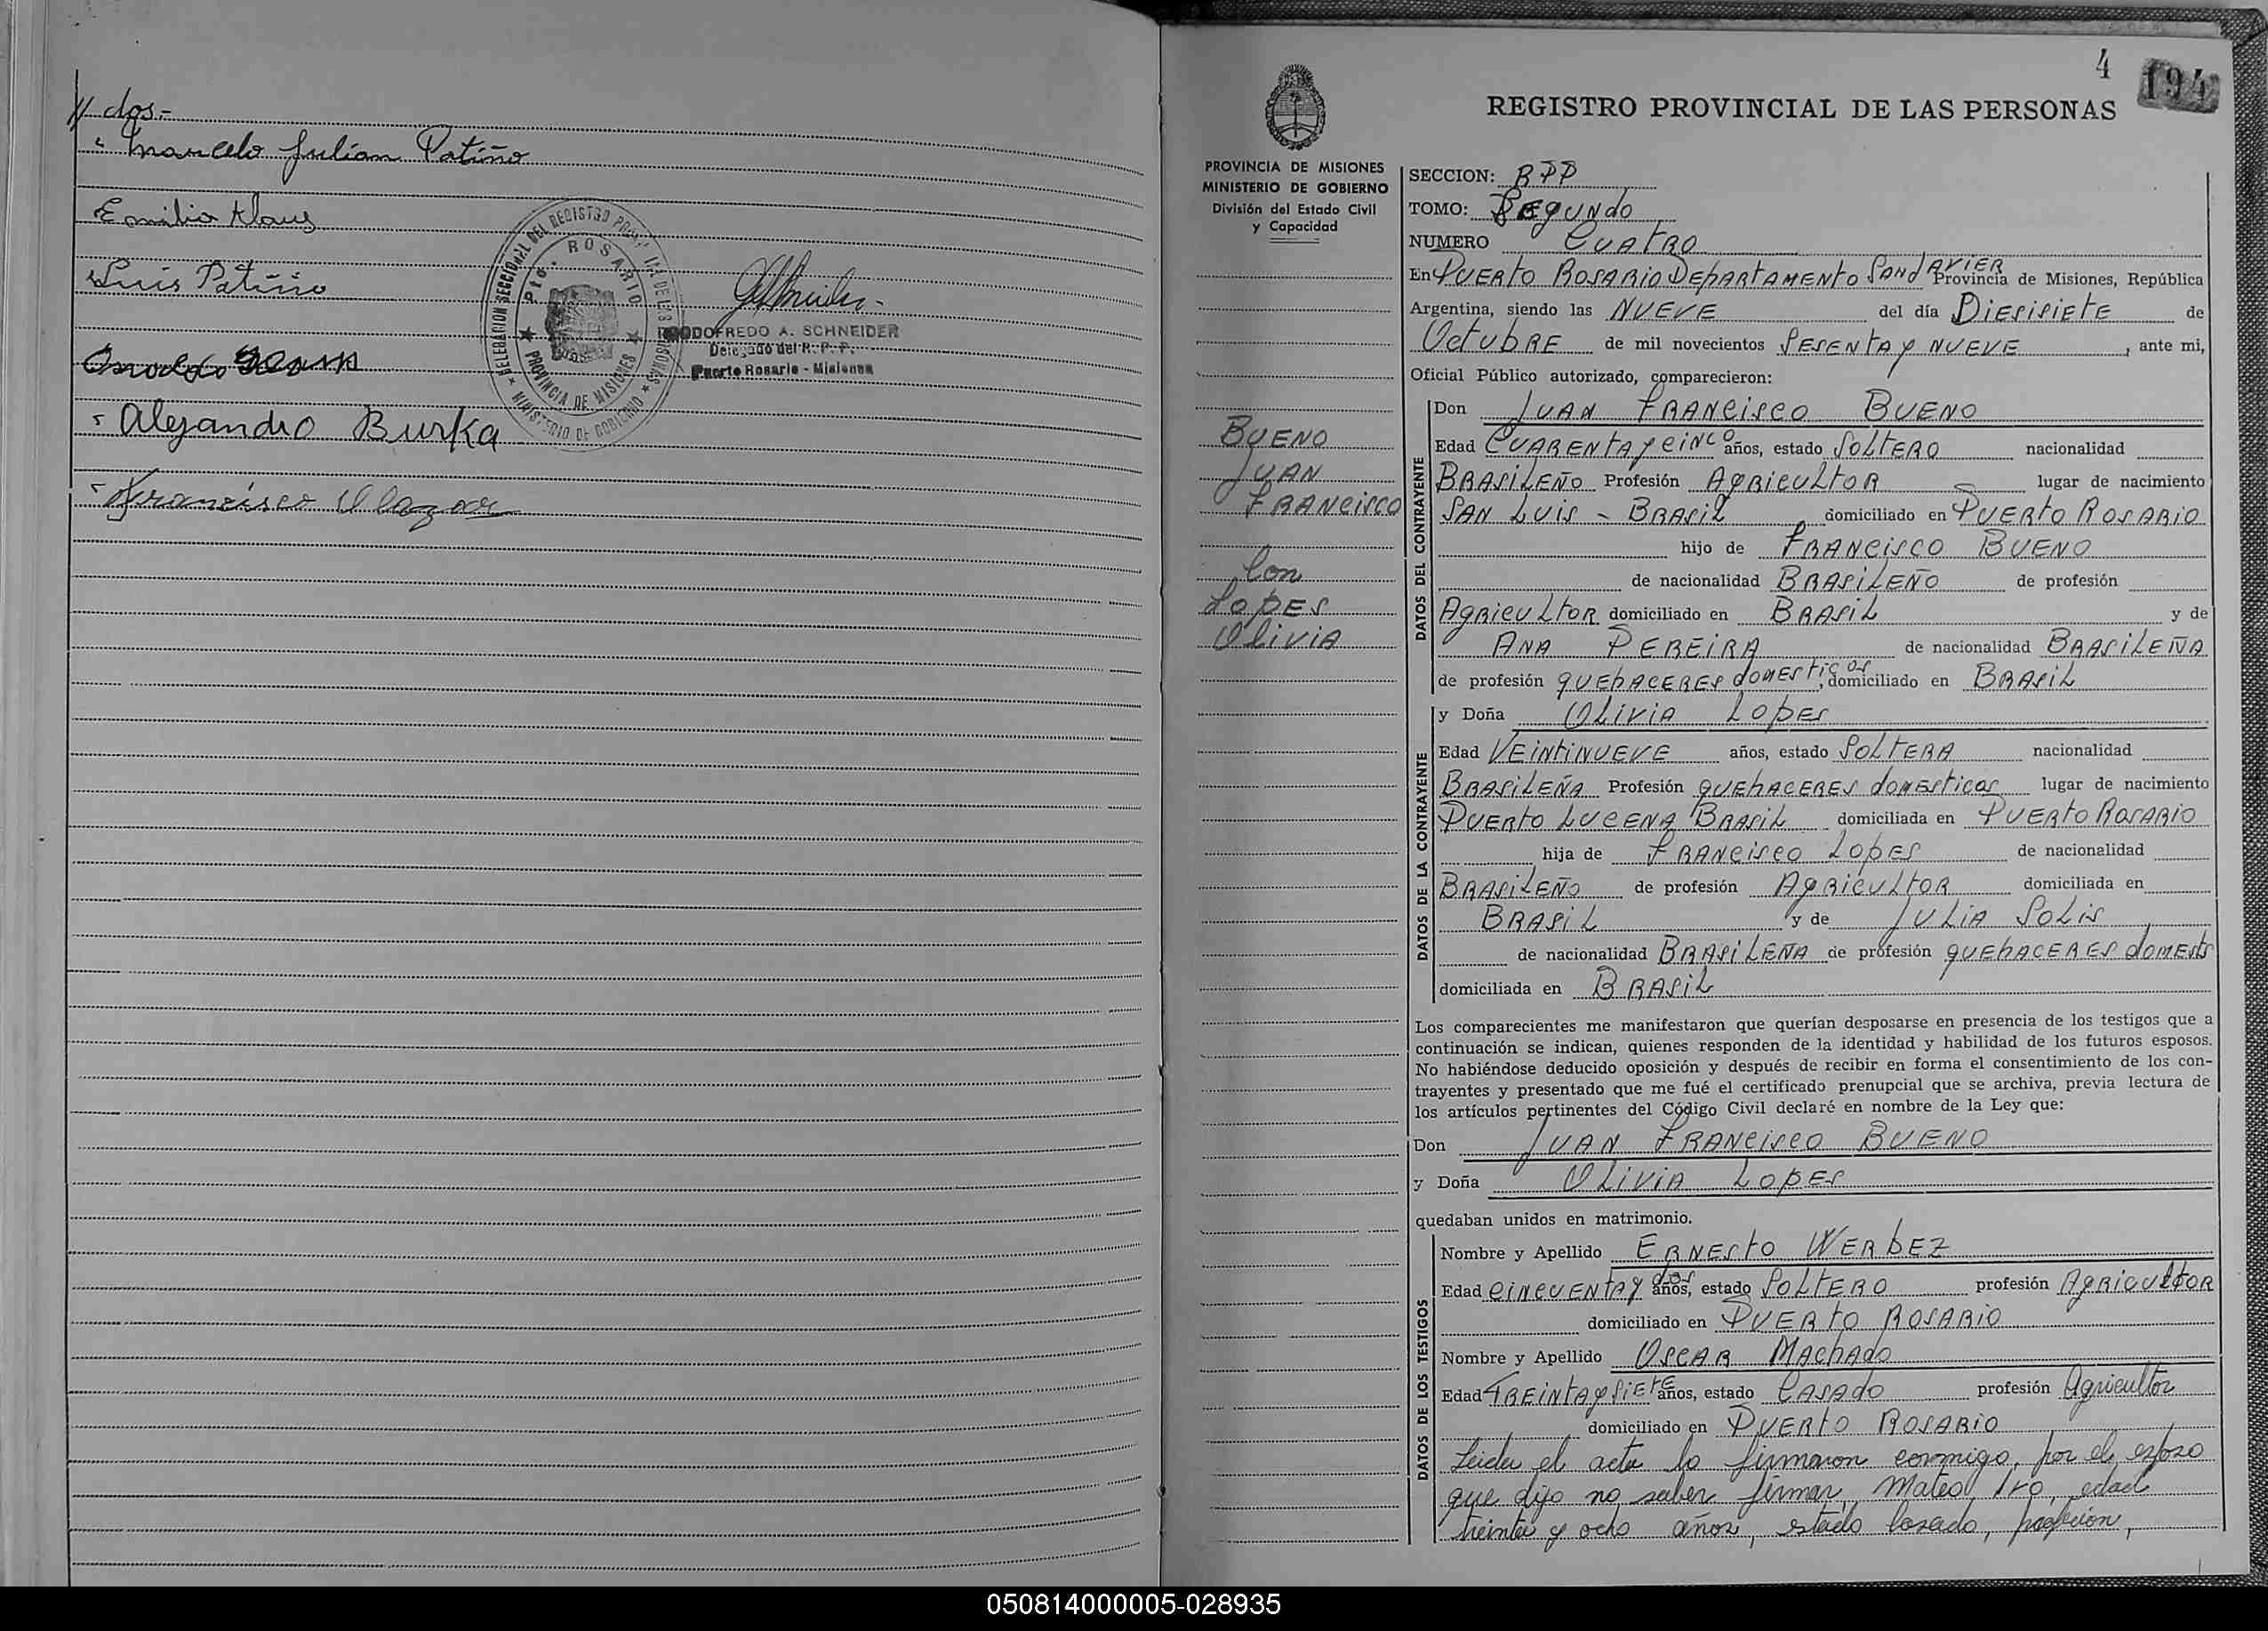 // dos.-
Marcelo Julian Patiño
Emilio Klaus
Luis Patiño
Alejandro Burka
Francisco Olazar
DELEGACION SECCIONAL DEL REGISTRO PROVINCIAL DE LAS PERSONAS
Pto. ROSARIO
PROVINCIA DE MISIONES
MINISTERIO DE GOBIERNO
GODOFREDO A. SCHNEIDER
Delegado del R. P. P.
Puerto Rosario - Misiones
4
194
REGISTRO PROVINCIAL DE LAS PERSONAS
PROVINCIA DE MISIONES
MINISTERIO DE GOBIERNO
División del Estado Civil
y Capacidad
BUENO
JUAN
FRANCISCO
Con
LOPES
OLIVIA
SECCION: RPP
TOMO: SEGUNDO
NUMERO CUATRO
En PUERTO ROSARIO DEPARTAMENTO SAN JAVIER Provincia de Misiones, República
Argentina, siendo las NUEVE del día DIESISIETE de
OCTUBRE de mil novecientos SESENTA Y NUEVE, ante mi,
Oficial Público autorizado, comparecieron:
DATOS DEL CONTRAYENTE
Don JUAN FRANCISCO BUENO
Edad CUARENTA Y CINCO años, estado SOLTERO nacionalidad
BRASILEÑO Profesión AGRICULTOR lugar de nacimiento
SAN LUIS - BRASIL domiciliado en PUERTO ROSARIO
hijo de FRANCISCO BUENO
de nacionalidad BRASILEÑO de profesión
AGRICULTOR domiciliado en BRASIL y de
ANA PEREIRA de nacionalidad BRASILEÑA
de profesión QUEHACERES DOMESTICOS, domiciliado en BRASIL
DATOS DE LA CONTRAYENTE
y Doña OLIVIA LOPES
Edad VEINTINUEVE años, estado SOLTERA nacionalidad
BRASILEÑA Profesión QUEHACERES DOMESTICOS lugar de nacimiento
PUERTO LUCENA BRASIL domiciliada en PUERTO ROSARIO
hija de FRANCISCO LOPES de nacionalidad
BRASILEÑO de profesión AGRICULTOR domiciliada en
BRASIL y de JULIA SOLIS
de nacionalidad BRASILEÑA de profesión QUEHACERES DOMESTS
domiciliada en BRASIL
Los comparecientes me manifestaron que querían desposarse en presencia de los testigos que a
continuación se indican, quienes responden de la identidad y habilidad de los futuros esposos.
No habiéndose deducido oposición y después de recibir en forma el consentimiento de los con-
trayentes y presentado que me fué el certificado prenupcial que se archiva, previa lectura de
los artículos pertinentes del Código Civil declaré en nombre de la Ley que:
Don JUAN FRANCISCO BUENO
y Doña OLIVIA LOPES
quedaban unidos en matrimonio.
DATOS DE LOS TESTIGOS
Nombre y Apellido ERNESTO WERBEZ
Edad CINCUENTA Y DOS años, estado SOLTERO profesión AGRICULTOR
domiciliado en PUERTO ROSARIO
Nombre y Apellido OSCAR MACHADO
Edad TREINTA Y SIETE años, estado CASADO profesión Agricultor
domiciliado en PUERTO ROSARIO
Leida el acta la firmaron conmigo, por el esposo
que dijo no saber firmar, Mateo edad
treinta y ocho años, estado Casado, profecion,
050814000005-028935